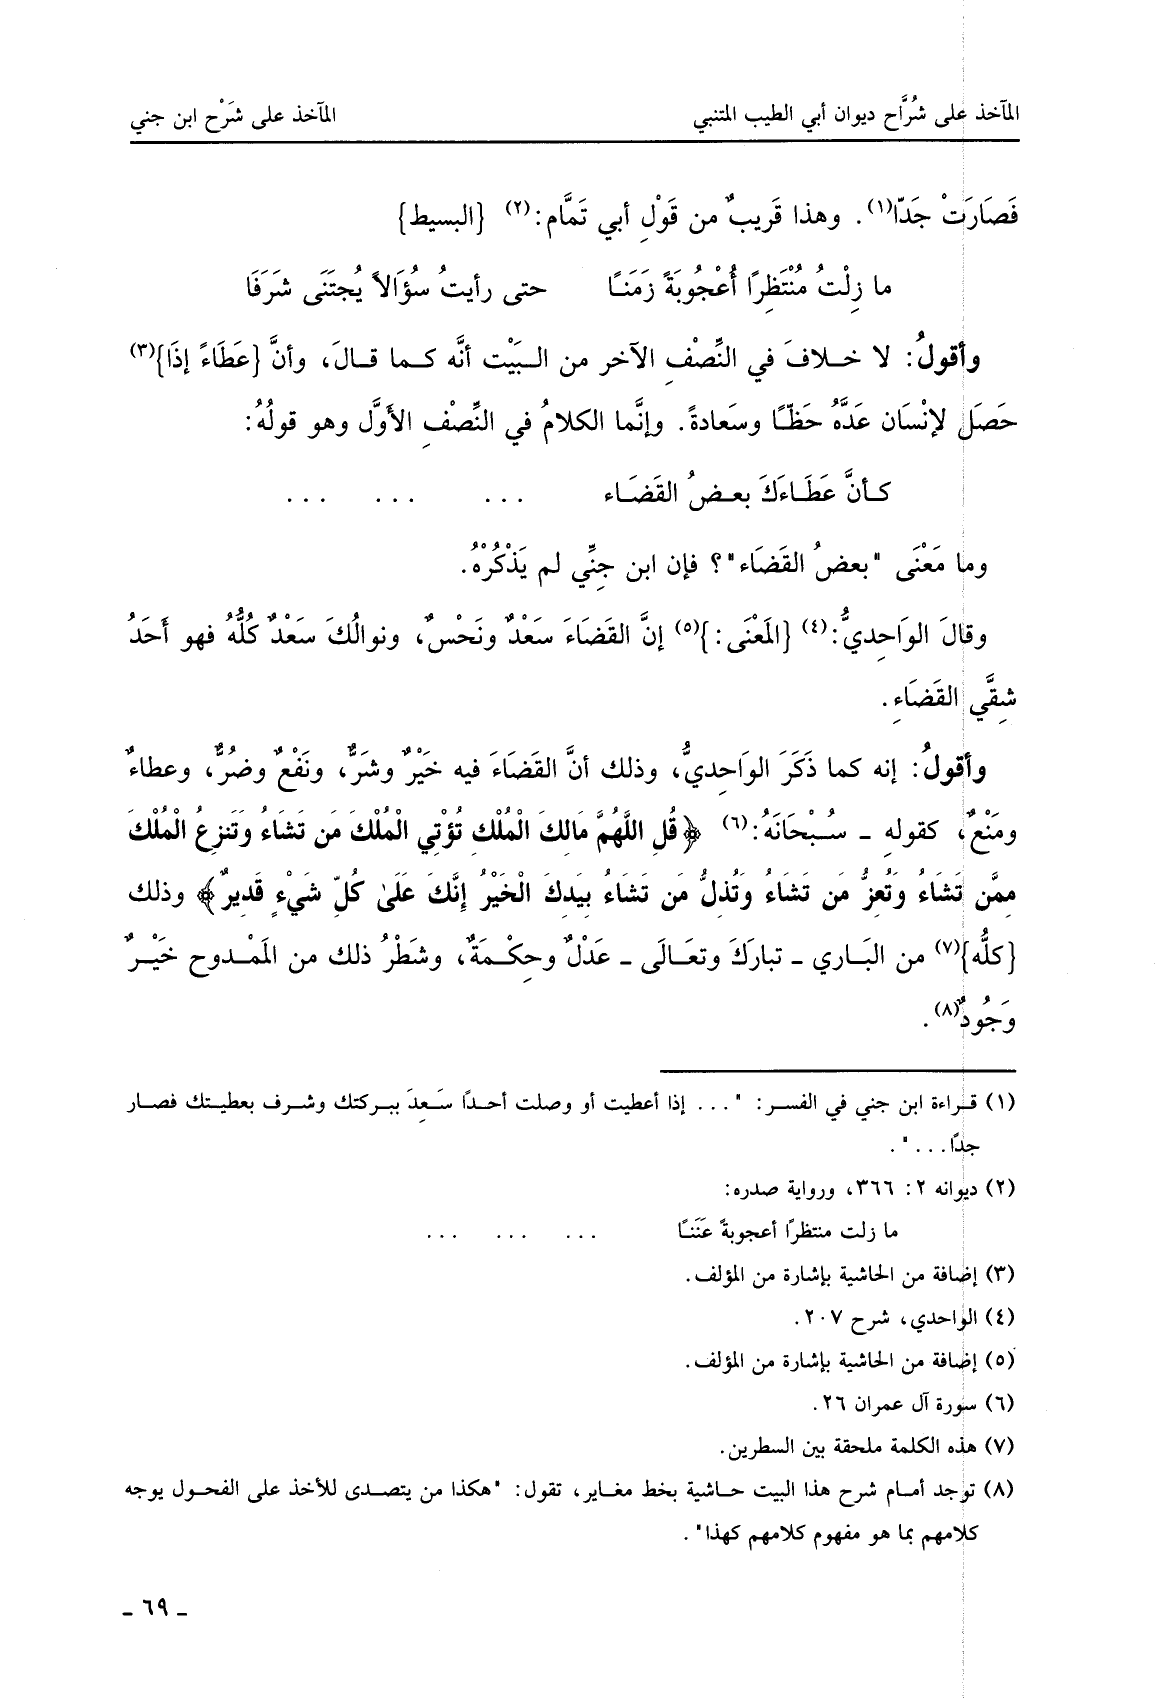 المآخذ على شُرَّاح ديوان أبي الطيب المتنبي المآخذ على شَرْح ابن جني
فَصَارَتْ جَدّا(١). وهذا قَريبٌ من قَوْلِ أبي تَمَّام:(٢) {البسيط}
ما زِلْتُ مُنْتَظِرًا أُعْجُوبَةً زَمَنًا حتى رأيتُ سُؤَالاً يُجتَنَى شَرَفَا
وأقولُ: لا خلافَ في النِّصْفِ الآخر من البَيْت أنَّه كما قالَ، وأنَّ {عَطَاءً إذَا}(٣)
حَصَلَ لإنْسَان عَدَّهُ حَظّا وسَعادةً. وإنَّما الكلامُ في النِّصْفِ الأَوَّل وهو قولُهُ:
كأنَّ عَطَاءَكَ بعضُ القَضَاء ... ... ...
وما مَعْنَى "بعضُ القَضَاء"؟ فإن ابن جنِّي لم يَذْكُرْهُ.
وقالَ الوَاحِديُّ:(٤) {المَعْنَى:}(٥) إنَّ القَضَاءَ سَعْدٌ ونَحْسٌ، ونوالُكَ سَعْدٌ كُلُّهُ فهو أَحَدُ
شِقَّي القَضَاءِ.
وأقولُ: إنه كما ذَكَرَ الوَاحديُّ، وذلك أنَّ القَضَاءَ فيه خَيْرٌ وشَرٌّ، ونَفْعٌ وضُرٌّ، وعطاءٌ
ومَنْعٌ، كقولهِ - سُبْحَانَهُ:(٦) ﴿قُلِ اللَّهُمَّ مَالِكَ الْمُلْكِ تُؤْتِي الْمُلْكَ مَن تَشَاءُ وَتَنزِعُ الْمُلْكَ
مِمَّن تَشَاءُ وَتُعِزُّ مَن تَشَاءُ وَتُذِلُّ مَن تَشَاءُ بِيَدِكَ الْخَيْرُ إِنَّكَ عَلَىٰ كُلِّ شَيْءٍ قَدِيرٌ﴾ وذلك
{كلُّه}(٧) من البَاري - تبارَكَ وتعَالَى - عَدْلٌ وحِكْمَةٌ، وشَطْرُ ذلك من المَمْدوح خَيْرٌ
وَجُودٌ(٨).
(١) قراءة ابن جني في الفسر: "... إذا أعطيت أو وصلت أحدًا سَعِدَ ببركتك وشرف بعطيتك فصار
جدًا...".
(٢) ديوانه ٢: ٣٦٦، ورواية صدره:
ما زلت منتظرًا أعجوبةً عَنَنًا ... ... ...
(٣) إضافة من الحاشية بإشارة من المؤلف.
(٤) الواحدي، شرح ٢٠٧.
(٥) إضافة من الحاشية بإشارة من المؤلف.
(٦) سورة آل عمران ٢٦.
(٧) هذه الكلمة ملحقة بين السطرين.
(٨) توجد أمام شرح هذا البيت حاشية بخط مغاير، تقول: "هكذا من يتصدى للأخذ على الفحول يوجه
كلامهم بما هو مفهوم كلامهم كهذا".
- ٦٩ -